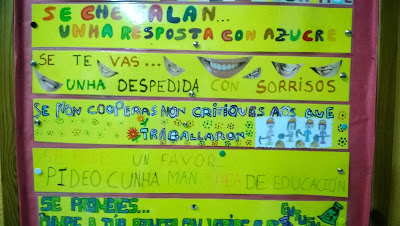 SE CHE FALAN...
UNHA RESPOSTA CON AZUCRE
SE TE VAS...
UNHA DESPEDIDA CON SORRISOS
SE NON COOPERAS NON CRITIQUES AOS QUE
TRABALLARON
UN FAVOR...
PIDEO CUNHA MANCHEA DE EDUCACIÓN
SE PROMETES...